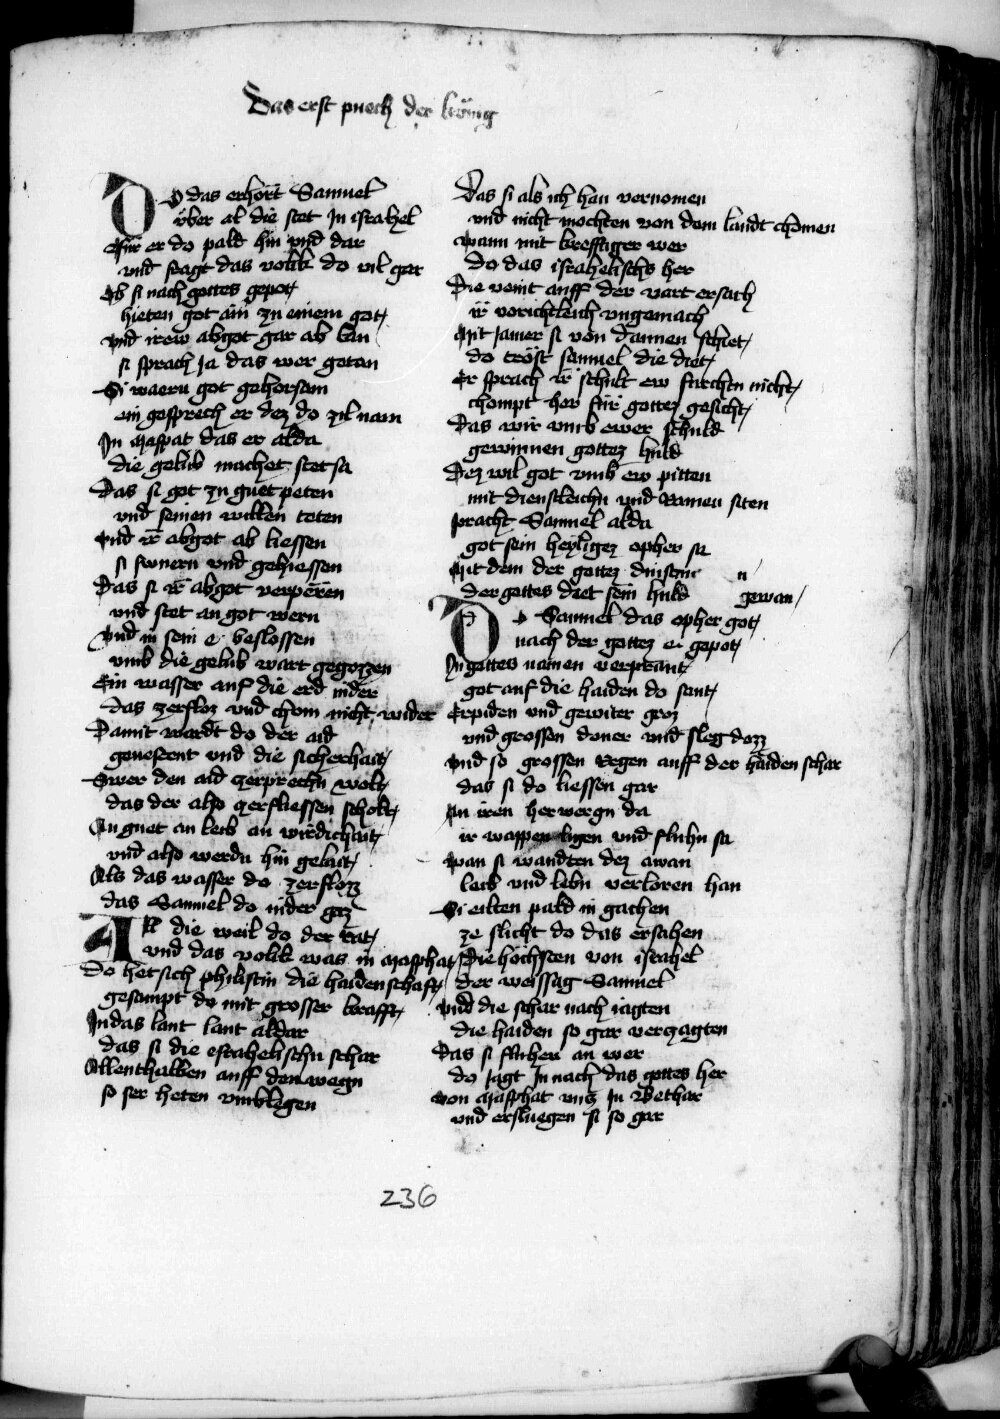 Das erst puech der künig
Do das erhört Samuel
über al die stet In israhel
Für er do pald hin vnd dar
vnd fragt das volkk do vil gar
Ob si nach gottes gepot
hieten got ain zu einem got
vnd irew abgot gar ab lan
si sprach Ja das wer getan
Si waern got gehorsam
ein gesprech er dez do zil nam
In Maspat das er alda
die gelub machet stet sa
Das si got zu guet peten
vnd seinen willen teten
vnd ir abgot ab liessen
si swuern vnd gehiessen
Das si ir abgot verperen
vnd stet an got wern
vnd in sein e beslossen
vmb die gelub wart gegozzen
Ein wasser auf die erd nider
das zerfloz vnd chom nicht wider
Damit wardt do der aid
geuestent vnd die sicherhait
Swer den aid zerprechn wolt
das der also zerfliessen scholt
An guet an leib an wirdichait
vnd also werdn hin gelait
Als das wasser do zerflozz
das Samuel do nider goz
All die weil do der rat
vnd das volkk was in Masphat
Do het sich philistin die haidenschaft
gesampt do mit grosser krafft
In das lant lant aldar
das si die israhelischn schar
Allenthalben auff den wegn
so ser heten vmblegen
Das si als ich han vernomen
vnd nicht mochten von dem landt chomen
wann mit krefftiger wer
do das israhelischs her
Die veint auff der vart ersach
ir vorichtleich vngemach
Mit Jamer si von dannen schiet
do tröst samuel die diet
Er sprach ir schult ew furchtn nicht
chompt her für gottez gesicht
Das wir vmb ewer schuld
gewinnen gottez huld
Dez wil got vmb ew pitten
mit dienstleichn vnd siten
pracht Samuel alda
got sein heyligez opher sa
Mit dem der gottez
der gottes diet sein huld gewan
Do Samuel das opher got
nach der gottez e gepot
In gottes namen verprant
got auf die haiden do sant
Erpiden vnd gewiter groz
vnd grossen doner vnd slegdozz
vnd so grossen regen auff der haiden schar
das si do liessen gar
An iren herwergn da
ir wappen ligen vnd fluhn sa
wan si wandten dez awan
leib vnd lebn verloren han
Si eilten pald in gachen
ze flicht do das ersahen
Die höchsten von israhel
der weissag Samuel
vnd die schar nach iagten
die haiden so gar verzagten
Das si fluhen an wer
do Jagt In nach das gottes her
von Masphat vntz In Bethar
vnd ersluegen si so gar
236